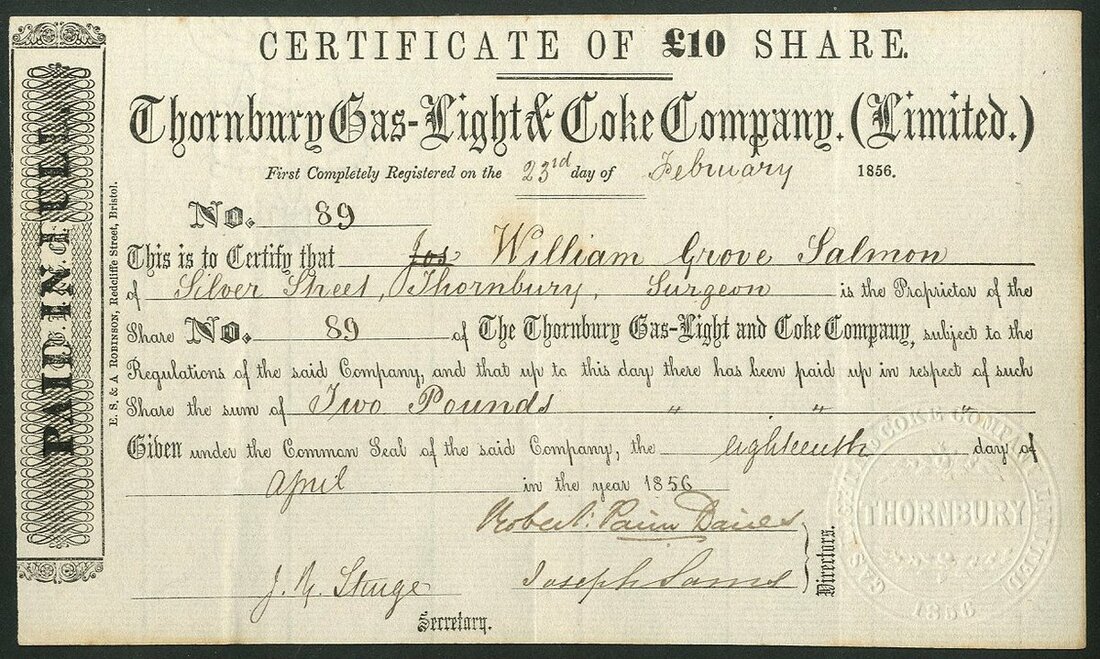 CERTIFICATE OF £10 SHARE.
Thornbury Gas-Light & Coke Company. (Limited.)
First Completely Registered on the 23rd day of February 1856.
No. 89
This is to Certify that Jos William Grove Salmon
of Silver Street, Thornbury, Surgeon is the Proprietor of the
Share No. 89 of The Thornbury Gas-Light and Coke Company, subject to the
Regulations of the said Company, and that up to this day there has been paid up in respect of such
Share the sum of Two Pounds " " "
Given under the Common Seal of the said Company, the eighteenth day of
April in the year 1856
Robert Davies
Joseph
Directors.
J. Y. Sturge
Secretary.
PAID IN FULL
E. S. & A ROBINSON, Redcliffe Street, Bristol.
GAS LIGHT & COKE COMPANY LIMITED
THORNBURY
1856